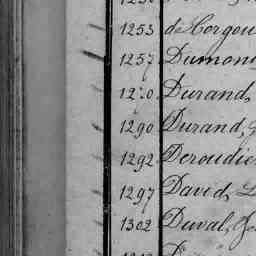 1253 de Corgou
1257 Dumon
12 0 Durand,
1290 Durand,
1292 Deroudie
1297 David, L
1302 Duval, Je